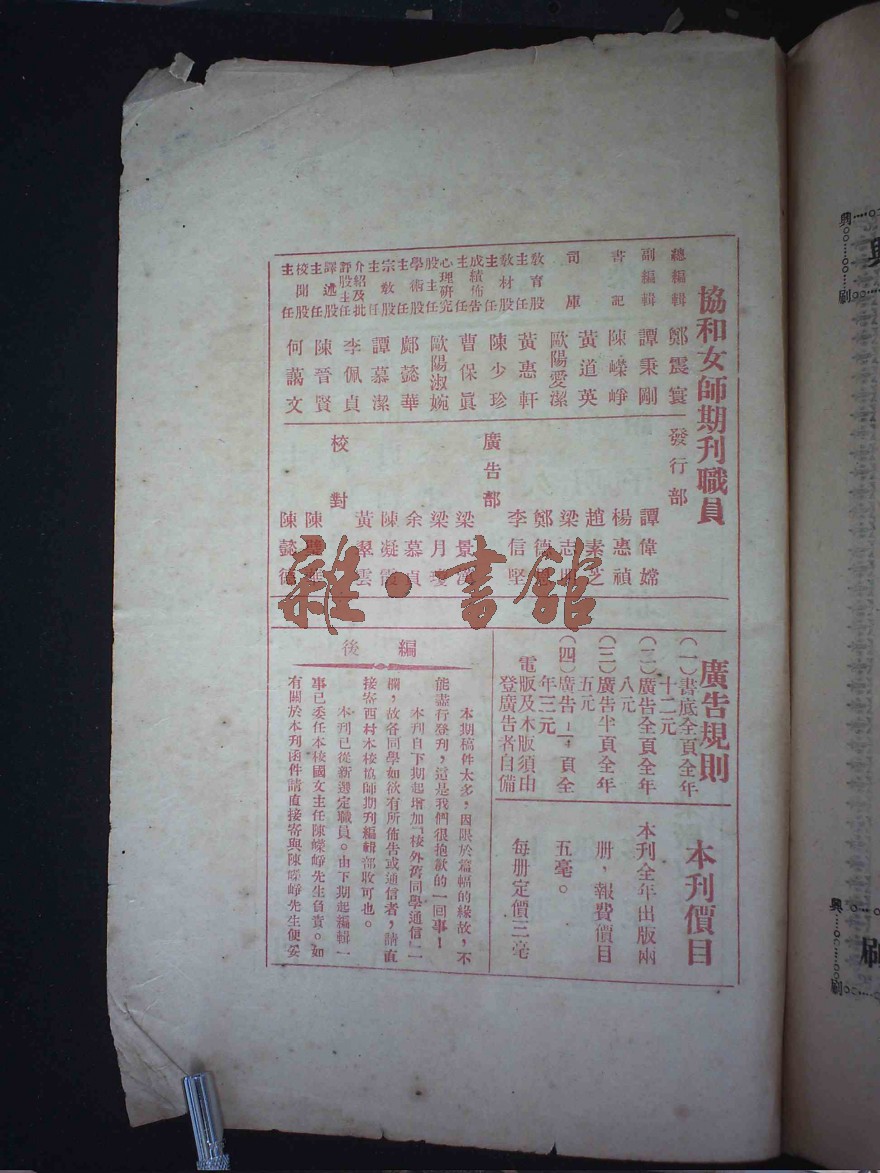 協和女師期刊職員
總編輯 鄭震寰
副編輯 譚秉剛
書記 陳嶸崢
黃道英
司庫 歐陽愛潔
教育股主任 黃惠軒
教材股主任 陳少珍
成績佈告主任 曹保眞
心理研究股主任 歐陽淑婉
學術股主任 鄺懿華
宗教股主任 譚慕潔
介紹及批評股主任 李佩貞
譯述股主任 陳晉賢
校聞股主任 何藹文
發行部
譚偉嫦
楊惠禎
趙素芝
梁志明
鄭德
李信堅
廣告部
梁景
梁月
余慕貞
陳凝霞
黃翠雲
校對
陳
陳懿德
廣告規則
(一)書底全頁全年
十二元
(二)廣告全頁全年
八元
(三)廣告半頁全年
五元
(四)廣告 頁全
年三元
電版及木版須由
登廣告者自備
本刊價目
本刊全年出版兩
册,報費價目
五毫。
每册定價三毫
編後
本期稿件太多,因限於篇幅的緣故,不
能盡行登刋,這是我們很抱歉的一回事!
本刊自下期起增加「校外舊同學通信」一
欄,故各同學如欲有所佈告或通信者,請直
接寄西村本校協師期刊編輯部收可也。
本刊已從新選定職員。由下期起編輯一
事已委任本校國文主任陳嶸崢先生負責。如
有關於本刊函件請直接寄與陳嶸崢先生便妥
雜·書館
興
刷